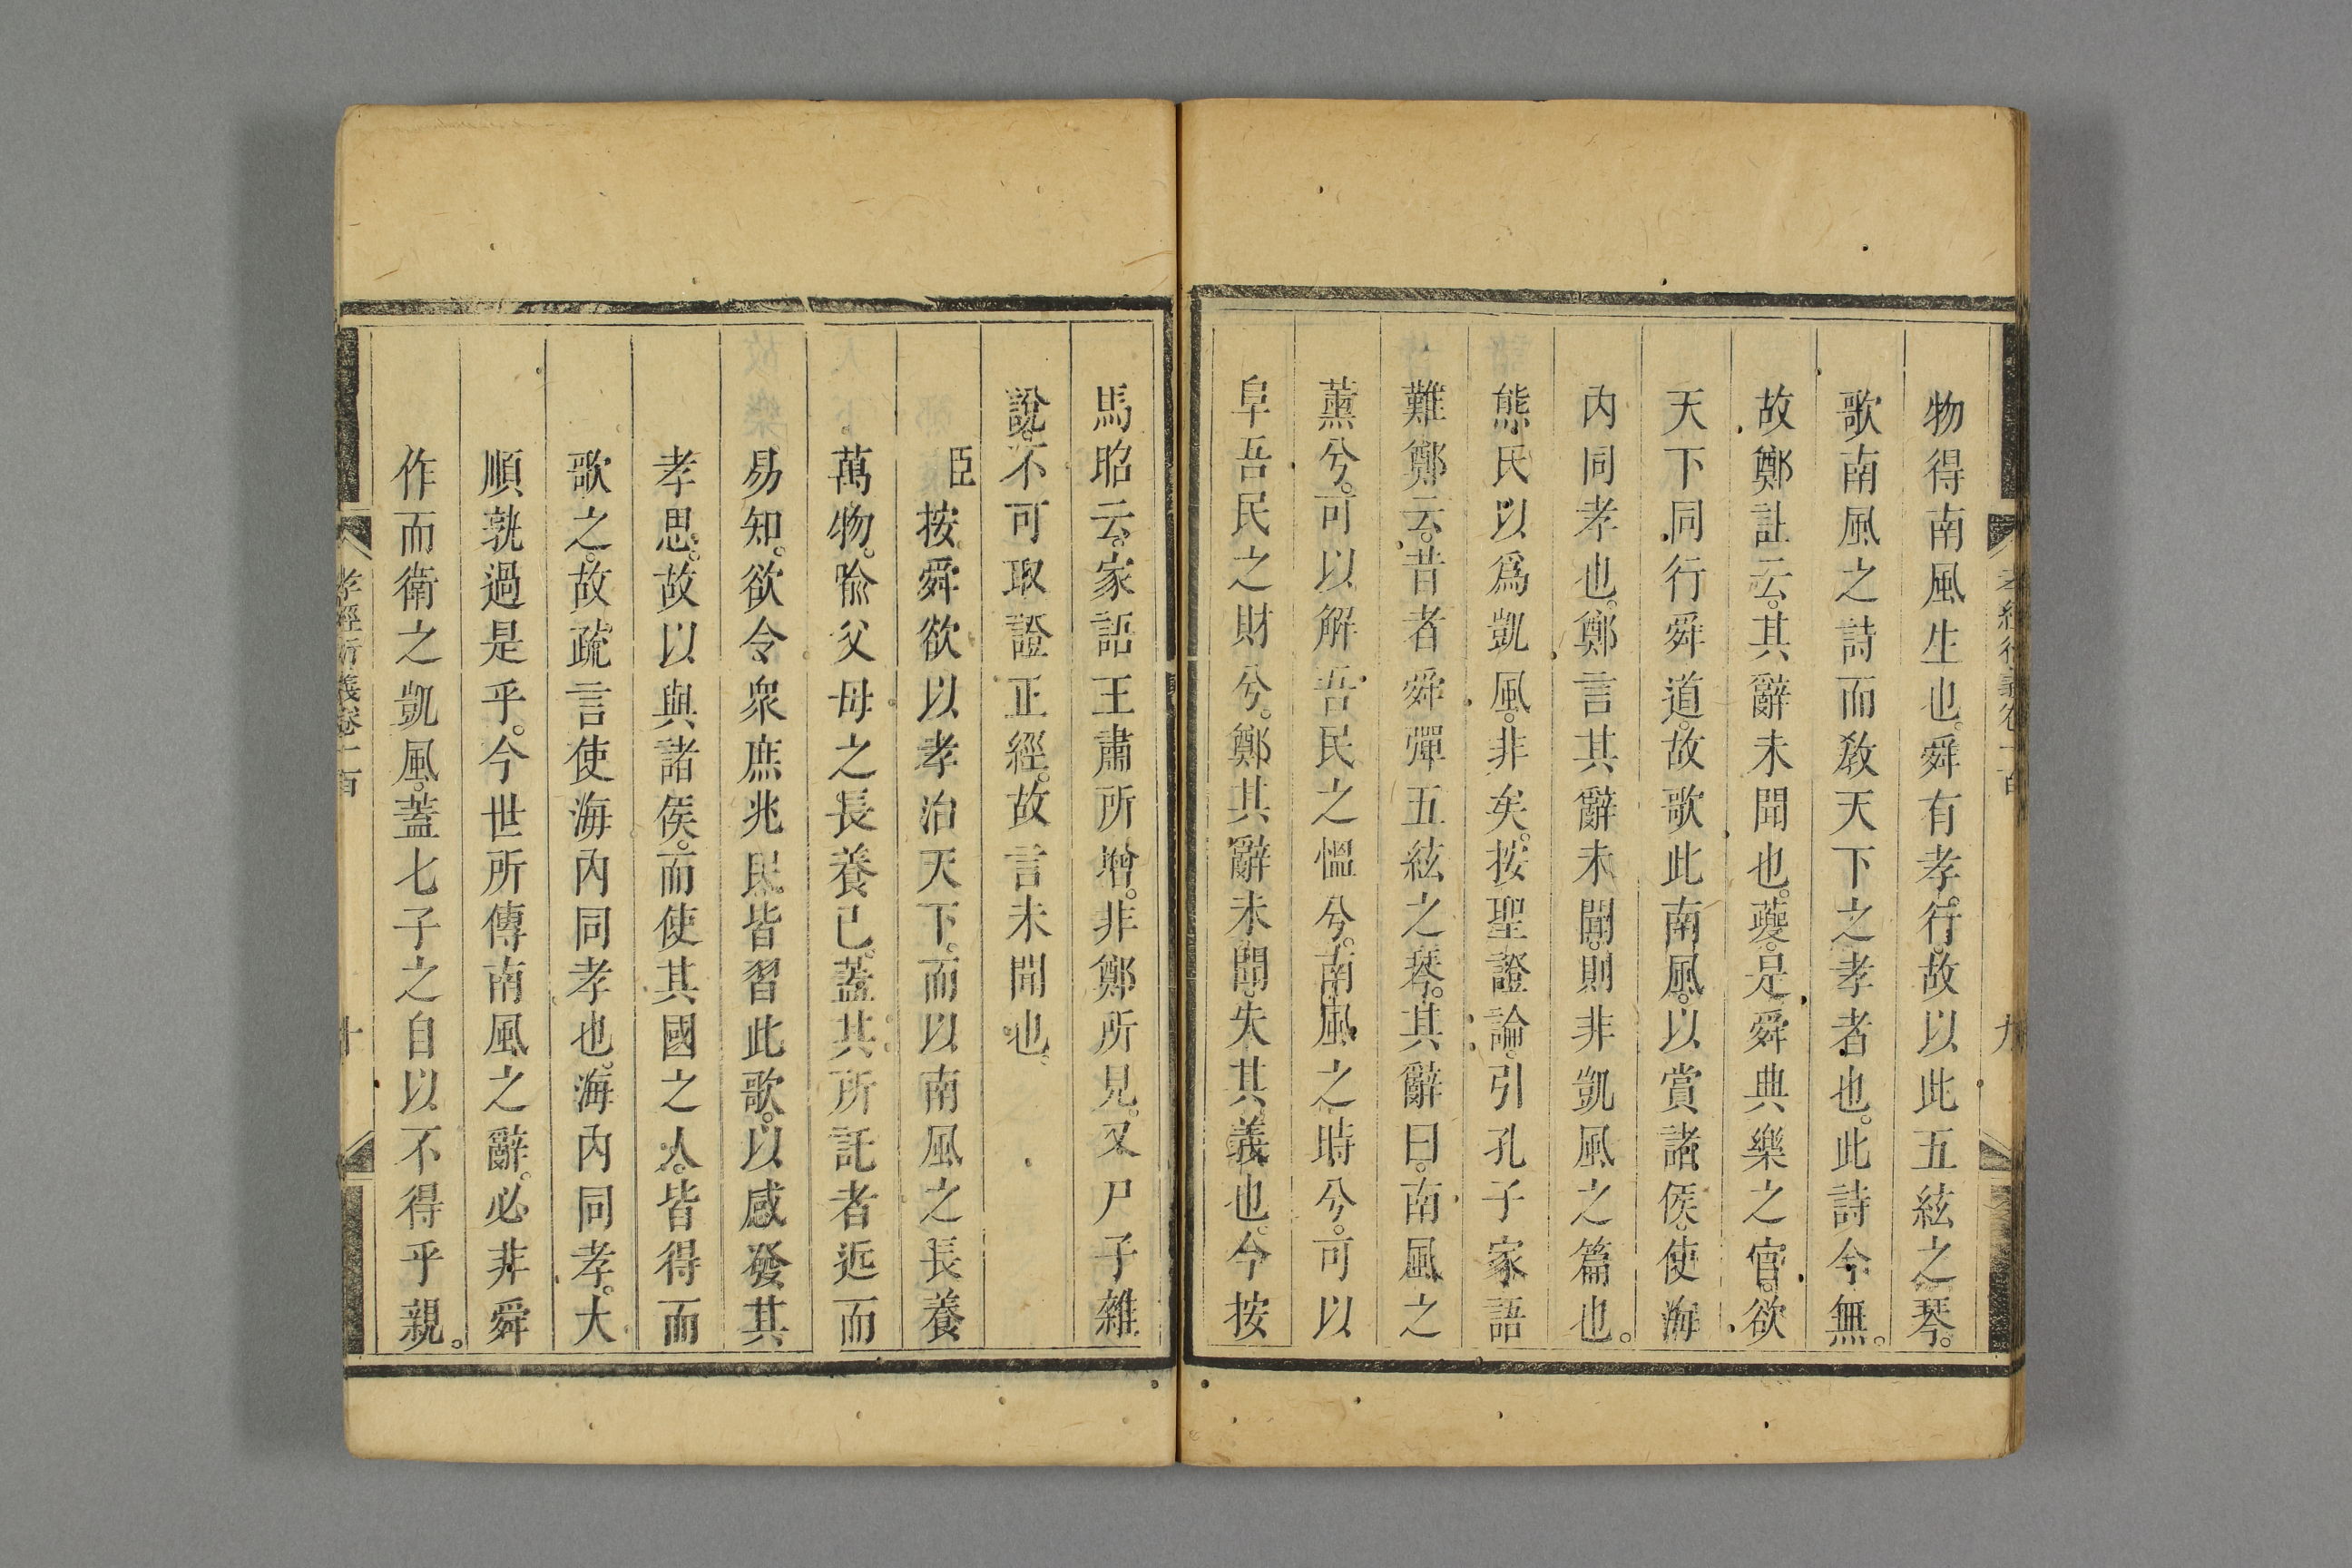 物得南風生也。舜有孝行。故以此五絃之琴。
歌南風之詩而教天下之孝者也。此詩今無。
故鄭註云。其辭未聞也。夔。是舜典樂之官。欲
天下同行舜道。故歌此南風。以賞諸侯。使海
內同孝也。鄭言其辭未聞。則非凱風之篇也。
熊氏以爲凱風。非矣。按聖證論。引孔子家語
難鄭云。昔者舜彈五絃之琴。其辭曰。南風之
薰兮。可以解吾民之慍兮。南風之時兮。可以
阜吾民之財兮。鄭其辭未聞。失其義也。今按
馬昭云。家語王肅所增。非鄭所見。又尸子雜
說。不可取證正經。故言未聞也。
臣按舜欲以孝治天下。而以南風之長養
萬物。喩父母之長養已。蓋其所託者近而
易知。欲令衆庶兆民皆習此歌。以感發其
孝思。故以與諸侯。而使其國之人。皆得而
歌之。故疏言使海內同孝也。海內同孝。大
順孰過是乎。今世所傳南風之辭。必非舜
作而衛之凱風。蓋七子之自以不得乎親。
孝經衍義卷一百
九
孝經衍義卷一百
十